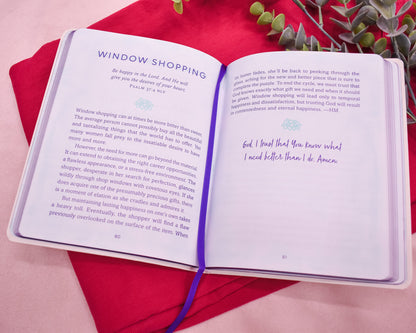 WINDOW SHOPPING
Be happy in the Lord. And He will
give you the desires of your heart.
PSALM 37:4 NLV
Window shopping can at times be more better than sweet.
The average person cannot possibly buy all the beautiful
and tantalizing things that the world has to offer. Yet
many women fall prey to the insatiable desire to have
more and more.
However, the need for more can go beyond the material.
It can extend to obtaining the right career opportunities,
a flawless appearance, or a stress-free environment. The
shopper, desperate in her search for perfection, glances
wildly through shop windows with covetous eyes. If she
does acquire one of the presumably precious gifts, there
is a moment of elation as she cradles and admires it.
But maintaining lasting happiness on one's own takes
a heavy toll. Eventually, the shopper will find a flaw
previously overlooked on the surface of the item. When
80
its luster fades, she'll be back to peeking through the
glass, aching for the new and better piece that is sure to
complete the puzzle. To end the cycle, we must trust that
God knows exactly what gift we need and when it should
be given. Window shopping will lead only to temporal
happiness and dissatisfaction, but trusting God will result
in contentedness and eternal happiness. —HM
God, I trust that You know what
I need better than I do. Amen.
81